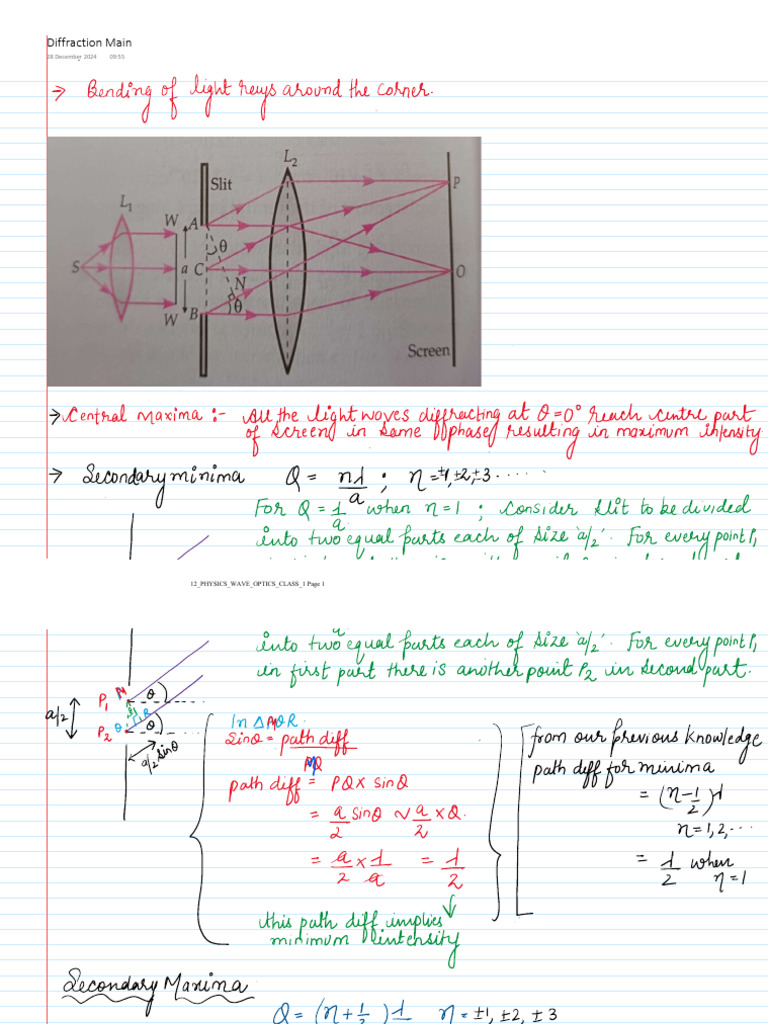 Diffraction Main
28 December 2024 09:55
→ Bending of light reys around the corner.
L₁
Slit
L₂
S
W
A
θ
a
C
N
W
B
θ
P
O
Screen
→ Central maxima :- All the light waves diffracting at θ=0° reach centre part
of screen in same phase resulting in maximum intensity
→ Secondary minima Q = nλ/a ; n = ±1, ±2, ±3 ......
For Q = λ/a when n=1 ; consider slit to be divided
into two equal parts each of size 'a/2'. For every point P₁
12_PHYSICS_WAVE_OPTICS_CLASS_1 Page 1
into two equal parts each of size 'a/2'. For every point P₁,
in first part there is another point P₂ in second part.
a/2
P₁
θ
P₂
θ
R
θ
a/2 sinθ
In Δ
sinθ = path diff
path diff = PQ x sinQ
= a/2 sinθ ~ a/2 x Q.
= a/2 x λ/a = λ/2
this path diff implies
minimum intensity
from our previous knowledge
path diff for minima
= (n-1/2)λ
n=1,2,...
= λ/2 when
n=1
Secondary Maxima
Q = (n+1/2)λ n = ±1, ±2, ±3